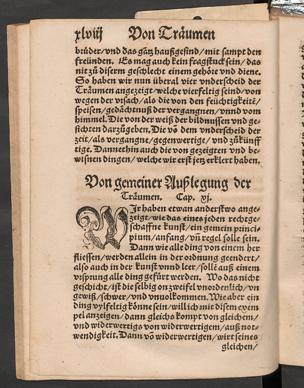 xlviij Von Träumen
brüder/vnd das gātz haußgesind/mit sampt den
freünden. Es mag auch kein fragstuck sein/ das
nit zů diserm geschlecht einem gehöre vnd diene.
So haben wir nun überal vier vnderscheid der
Träumen angezeigt/welche vierfeltig seind/von
wegen der vrsach/ als die von den feüchtigkeitē/
speisen/gedächtnuß der vergangnen/vnnd vom
himmel. Die von der weiß der bildnussen vnd ge-
sichten darzůgeben. Die vō dem vnderscheid der
zeit/als vergangne/gegenwertige/ vnd zůkünff
tige. Dannethin auch die von gezeigten vnd be-
wisnen dingen/ welche wir erst jetz erklert haben.
Von gemeiner Außlegung der
Träumen. Cap. xj.
WIr haben etwan anderstwo ange-
zeigt/wie das eines jeden rechtge-
schaffne kunst/ein gemein princi-
pium/anfang/vn̄ regel solle sein.
Dann wie alle ding von einem her
fliessen/werden allein in der ordnung geendert/
also auch in der kunst vnnd leer/ solle auß einem
vrsprung alle ding gefürt werden. Wo das nicht
geschicht/ist dieselbig on zweifel vnordenlich/vn
gewiß/schwer/vnd vnuolkommen. Wie aber ein
ding vylfeltig könne sein/will ich mit disem exem
pel anzeigen/ dann gleichs kompt von gleichem/
vnd widerwertigs von widerwertigem/ auß not-
wendigkeit. Dann vō widerwertigen/wirt seines
gleichen/